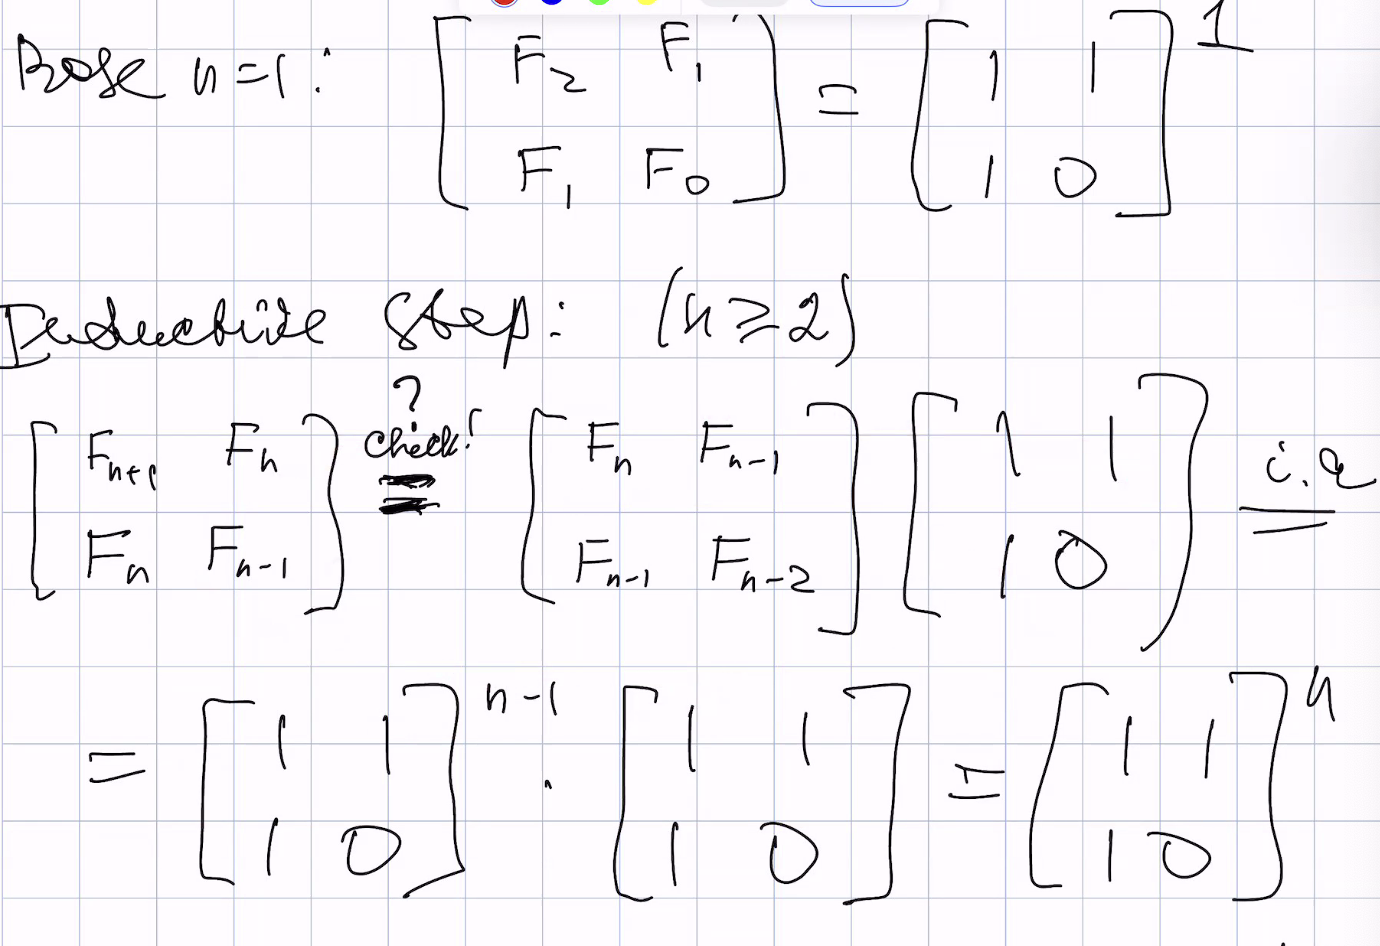 Base n=1: [ F_2 F_1 ; F_1 F_0 ] = [ 1 1 ; 1 0 ]^1
Inductive step: (n ≥ 2)
[ F_{n+1} F_n ; F_n F_{n-1} ] =^{? check!} [ F_n F_{n-1} ; F_{n-1} F_{n-2} ] [ 1 1 ; 1 0 ] =^{i.a}
= [ 1 1 ; 1 0 ]^{n-1} · [ 1 1 ; 1 0 ] = [ 1 1 ; 1 0 ]^n